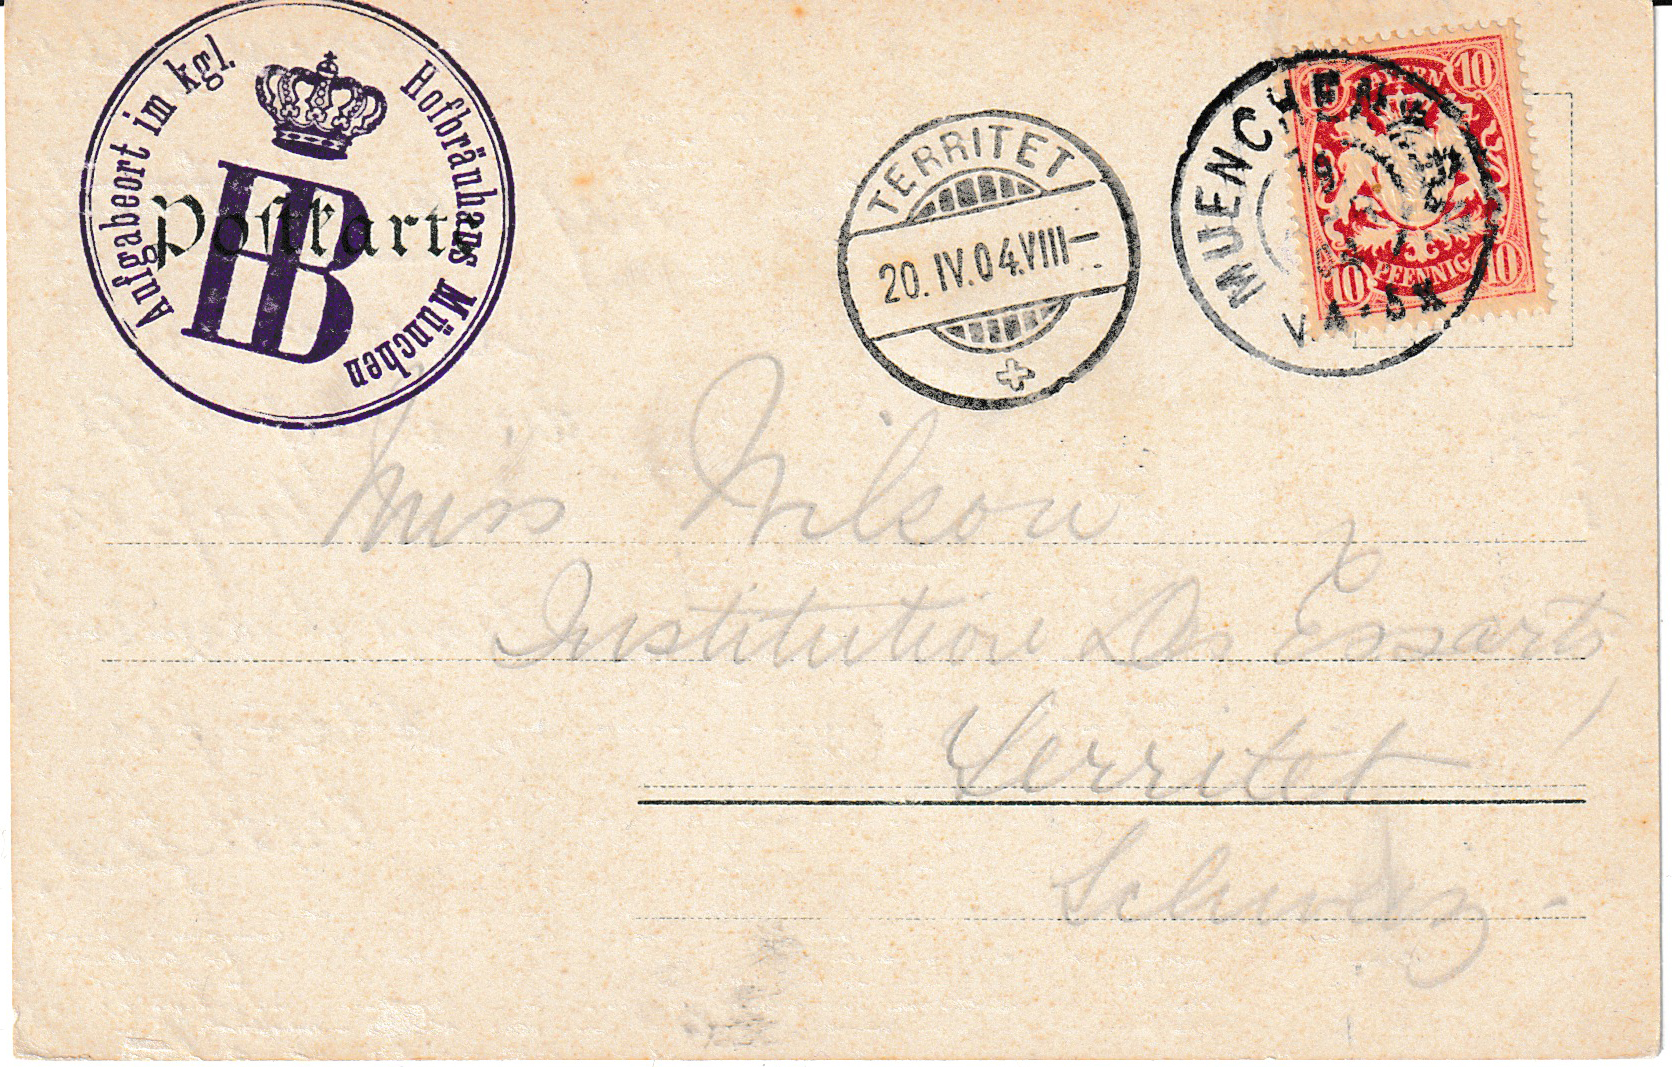 Aufgabeort im kgl. Hofbräuhaus München
HB
Postkarte
TERRITET
20. IV. 04. VIII—
MUENCHEN
V.A.
BAYERN
10 10
10 PFENNIG 10
Miss Wilson
Institution Des Essarts
Territet
Schweiz -